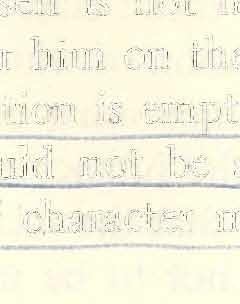 self is not
r him on the
tion is empt
uld not be s
character